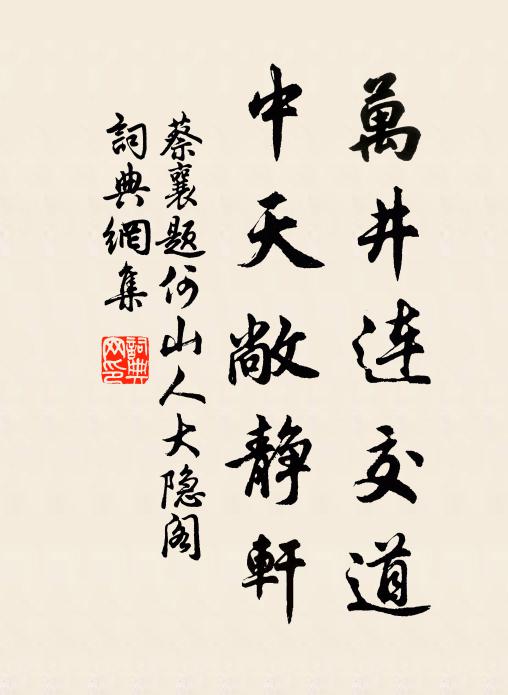 萬井連交道
中天敞静軒
蔡襄题何山人大隐阁
詞典網集
詞典
网印